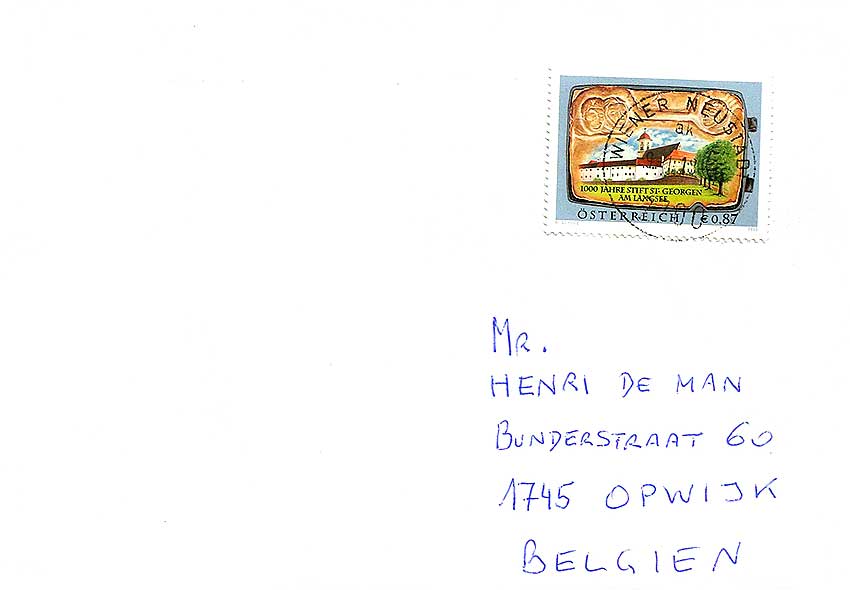 WIENER NEUSTADT
1000 JAHRE STIFT ST. GEORGEN
AM LÄNGSEE
ÖSTERREICH €0,87
Mr.
HENRI DE MAN
BUNDERSTRAAT 60
1745 OPWIJK
BELGIEN